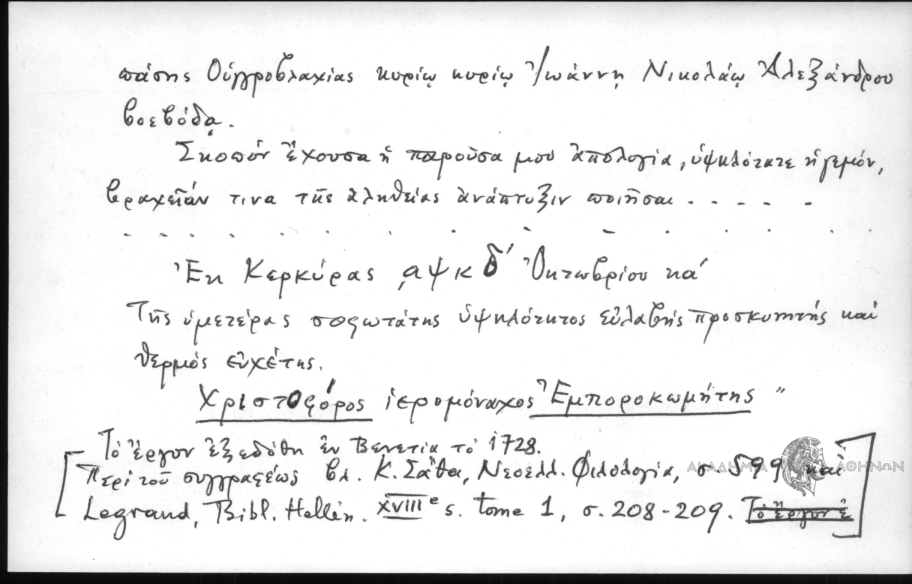 πάσης Οὑγγροβλαχίας κυρίῳ κυρίῳ Ἰωάννῃ Νικολάῳ Ἀλεξάνδρου
βοεβόδᾳ.
Σκοπὸν ἔχουσα ἡ παροῦσα μου ἀπολογία, ὑψηλότατε ἡγεμόν,
βραχεῖάν τινα τῆς ἀληθείας ἀνάπτυξιν ποιῆσαι . - . - -
. . . . . . . . . . . . . .
Ἐκ Κερκύρας ͵αψκδ΄ Ὀκτωβρίου κα΄
Τῆς ὑμετέρας σοφωτάτης ὑψηλότητος εὐλαβὴς προσκυνητής καὶ
θερμὸς εὐχέτης.
Χριστοφόρος ἱερομόναχος Ἐμποροκωμήτης "
[Τὸ ἔργον ἐξεδόθη ἐν Βενετίᾳ τὸ 1728.
Περὶ τοῦ συγγραφέως βλ. Κ. Σάθα, Νεοελλ. Φιλολογία, σ. 599 καὶ
Legrand, Bibl. Hellén. XVIIIe s. tome 1, σ. 208-209. Τὸ ἔργον ἐ]
ΑΚΑΔΗΜΙΑ ΑΘΗΝΩΝ